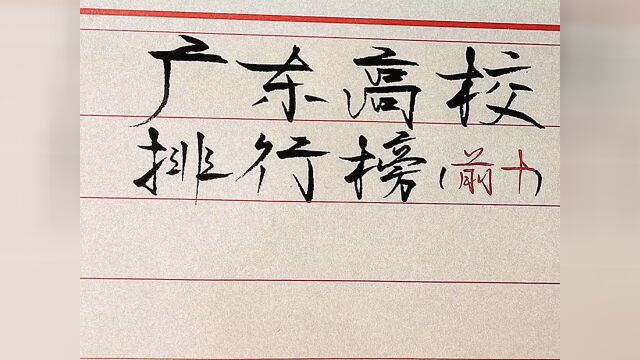 广东高校
排行榜(前十)